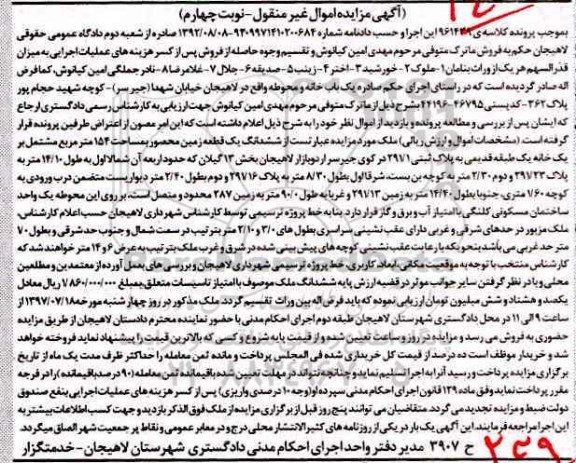 (آگهی مزایده اموال غیر منقول - نوبت چهارم)
بموجب پرونده کلاسه ی ۹۶۱۴۳۹ این اجرا و حسب دادنامه شماره ۹۳۰۹۹۷۱۴۱۰۲۰۰۶۸۴-۱۳۹۲/۰۸/۰۸ صادره از شعبه دوم دادگاه عمومی حقوقی
لاهیجان حکم به فروش ماترک متوفی مرحوم مهدی امین کیانوش و تقسیم وجوه حاصله از فروش پس از کسر هزینه های عملیات اجرایی به میزان
قدرالسهم هر یک از وراث بنامان ۱- ملوک ۲- خورشید ۳- اختر ۴- زینب ۵- صدیقه ۶- جلال ۷- غلامرضا ۸- نادر جملگی امین کیانوش، کما فرض
اله صادر گردیده است که در راستای اجرای حکم صادره یک باب خانه و محوطه واقع در لاهیجان خیابان شهدا (جیر سر) - کوچه شهید حجام پور
پلاک ۳۶۲- کدپستی ۴۶۷۹۵-۴۴۱۹۶ بشرح ذیل از ماترک متوفی مرحوم مهدی امین کیانوش جهت ارزیابی به کارشناس رسمی دادگستری ارجاع
که ایشان پس از بررسی و مطالعه پرونده و بازدید از اموال نظر خود را به شرح ذیل اعلام داشته است که این امر مصون از اعتراض طرفین پرونده قرار
گرفته است. (مشخصات اموال و ارزش ریالی) ملک مورد مزایده عبارتست از ششدانگ یک قطعه زمین محصور بمساحت ۱۵۴ متر مربع مشتمل بر
یک خانه یک طبقه قدیمی به پلاک ثبتی ۲۹/۱ در کوی جیرسر اردوبازار لاهیجان بخش ۱۳ گیلان که حدود اربعه آن شمالا اول به طول ۱۴/۱۰ متر به
پلاک ۲۹/۲۳ و دوم ۲/۳۰ متر به کوچه بن بست، شرقا اول بطول ۸/۳۰ متر به پلاک ۲۹/۱۶ و دوم بطول ۲/۴۰ متر دیواریست متضمن درب ورودی به
کوچه ۱/۶۰ متری، جنوبا بطول ۱۴/۴۰ متر به زمین ۲۹/۱۳ و غربا به طول ۹۰/۱۰ متر به زمین ۲۸۷ محدود و متصل است. بر روی این محوطه یک واحد
ساختمان مسکونی کلنگی با امتیاز آب و برق و گاز قرار دارد. بنا به خط پروژه ترسیمی توسط کارشناس شهرداری لاهیجان حسب اعلام کارشناس،
ملک مزبور در حدهای شرقی و غربی دارای عقب نشینی سراسری بطول های ۳/۱۰ و ۲/۱۰ متر بترتیب در سمت شمال و جنوب حد شرقی و بطول ۷۰
متر حد غربی می باشد بنحویکه با رعایت عقب نشینی کوچه های پیش بینی شده در شرق و غرب ملک بترتیب به عرض ۶ و ۱۴ متر خواهند شد که
کارشناس منتخب با توجه به موقعیت مکانی، ابعاد، کاربری، خط پروژه ترسیمی شهرداری لاهیجان و بررسی های بعمل آورده از معتمدین و مطلعین
محلی و با در نظر گرفتن سایر جوانب موثر در قضیه ارزش پایه ششدانگ ملک موصوف با امتیاز تاسیسات متعلق بمبلغ ۱/۸۶۰/۰۰۰/۰۰۰ ریال معادل
یکصد و هشتاد و شش میلیون تومان ارزیابی نموده که باید فرض اله بین وراث تقسیم گردد. ملک مذکور در روز چهار شنبه مورخه ۱۳۹۷/۰۷/۱۸ از
ساعت ۹ الی ۱۱ در محل دادگستری شهرستان لاهیجان طبقه دوم اجرای احکام مدنی با حضور نماینده محترم دادستان لاهیجان از طریق مزایده
حضوری به فروش می رسد و مزایده در روز و ساعت تعیین شده و از قیمت پایه شروع و کسی که بالاترین قیمت را پیشنهاد نماید فروخته خواهد
شد و خریدار موظف است ده درصد از قیمت کل خریداری شده فی المجلس پرداخت و مانده ثمن معامله را حداکثر ظرف مدت یک ماه از تاریخ
برگزاری مزایده پرداخت و رسید آنرا به اجرا تسلیم نماید و چنانچه نتواند در مهلت تعیین شده باقیمانده ثمن معامله (۹۰ درصد باقیمانده) را در فرجه
مقرر پرداخت نماید وفق ماده ۱۲۹ قانون اجرای احکام مدنی سپرده او (وجه ۱۰ درصدی واریزی) پس از کسر هزینه های عملیات اجرایی بنفع صندوق
دولت ضبط و مزایده تجدید می گردد. متقاضیان می توانند پنج روز قبل از برگزاری مزایده از ملک فوق الذکر بازدید و جهت کسب اطلاعات بیشتر به
این اجرا مراجعه فرمایند. این آگهی یک بار در یکی از روزنامه های کثیر الانتشار محلی درج و در معابر عمومی و نقاط پر جمعیت شهر الصاق میگردد.
ح ۳۹۰۷ مدیر دفتر واحد اجرای احکام مدنی دادگستری شهرستان لاهیجان - خدمتگزار
۲۵۹